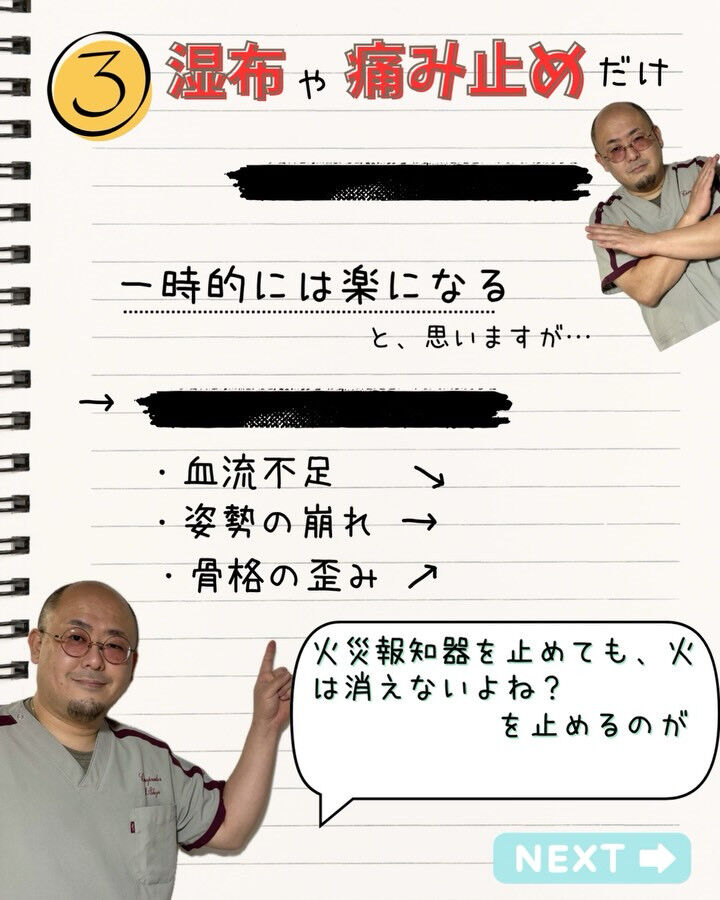 3 湿布や痛み止めだけ
一時的には楽になる
と、思いますが…
→
・血流不足 ↘
・姿勢の崩れ →
・骨格の歪み ↗
火災報知器を止めても、火
は消えないよね？
を止めるのが
NEXT